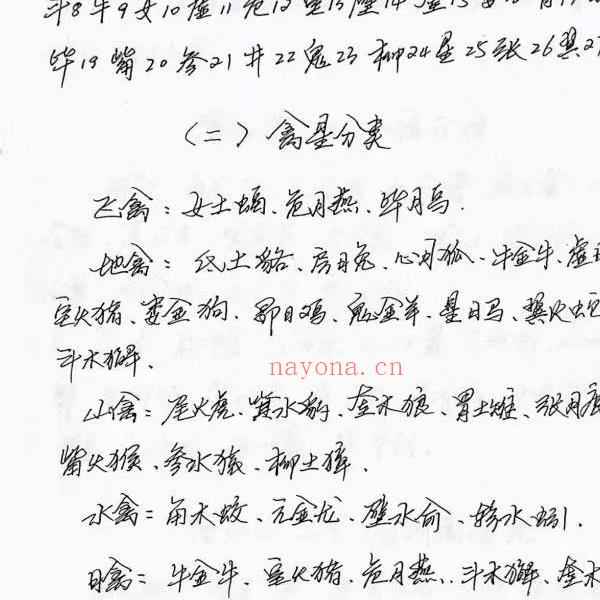 斗8牛9女10虚11危12室13壁14奎15娄16胃17
毕19觜20参21井22鬼23柳24星25张26翼27
(二)禽星分类
飞禽：女土蝠、危月燕、毕月乌.
地禽：氐土貉、房日兔、心月狐、牛金牛、虚日
室火猪、娄金狗、昴日鸡、鬼金羊、星日马、翼火蛇
斗木獬.
nayona.cn
山禽：尾火虎、箕水豹、奎木狼、胃土雉、张月鹿
觜火猴、参水猿、柳土獐.
水禽：角木蛟、亢金龙、壁水俞、轸水蚓.
日禽：牛金牛、室火猪、危月燕、斗木獬、奎木